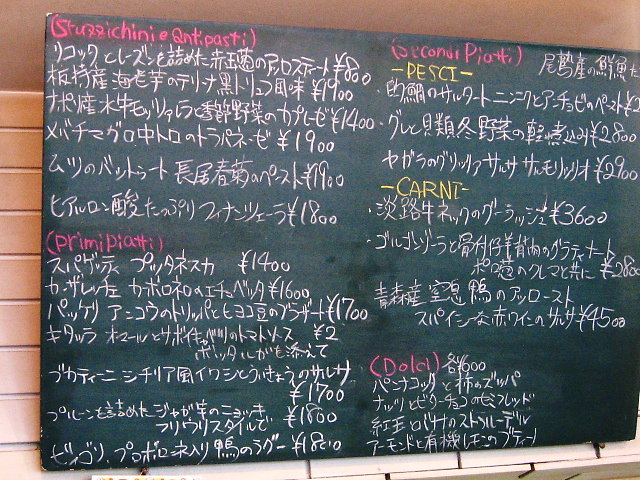 (Stuzzichini e Antipasti)
リコッタとレーズンを詰めた赤玉葱のアッロスティート ¥800
板持産海老芋のテリーナ黒トリュフ風味 ¥1900
ナポリ産水牛モッツァレラと季節野菜のカプレーゼ ¥1400
メバチマグロ中トロのトラパネーゼ ¥1900
ムツのバットゥート 長尾春菊のペースト ¥1900
ヒアルロン酸たっぷりフィナンツィエーラ ¥1800
(Primi piatti)
スパゲッティ プッタネスカ ¥1400
カーザレッチェ カポロネロの ¥1600
パッケリ アンコウのトリッパとヒヨコ豆のブラザート ¥1700
キタッラ オマールとサボイキャベツのトマトソース ¥2
ボッタルガを添えて
ブカティーニ シチリア風イワシとういきょうのサルサ
¥1700
プルーンを詰めたジャガ芋のニョッキ ¥1800
フリウリスタイルで
ビーゴリ プロボローネ入り鴨のラグー ¥1800
(Secondi Piatti) 尾鷲産の鮮魚
-PESCI-
・的鯛のサルタート ニンニクとアンチョビのペースト ¥2
・グレと貝類冬野菜の軽い煮込み ¥2800
・ヤガラのグリッリア サルサ サルモリッリオ ¥2900
-CARNI-
・淡路牛ネックのグーラッシュ ¥3600
・ゴルゴンゾーラと骨付仔羊背肉のグラティナート
ポロ葱のクレマと共に ¥2800
青森産 鴨のアッロースト
スパイシーな赤ワインのサルサ ¥4500
(Dolci) 各¥600
パンナコッタと柿のズッパ
ナッツとビターチョコのセミフレッド
紅玉とバナナのストゥルーデル
アーモンドと有機レモンのブディーノ